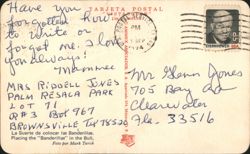 TARJETA POSTAL
Have you
forgotten how
to write or
forgot me. I love
you always!
Mammee
MRS RIDDELL JONES
PALM RESACA PARK
LOT 71
R#3 Box 967
BROWNSVILLE Tex 78520
La Suerte de colocar las Banderillas.
Placing the "Banderillas" in the Bull,
Foto por Mark Turok
PM
EISENHOWER USA
Mr Glenn Jones
705 Bay
Clearwater
Fla. 33516